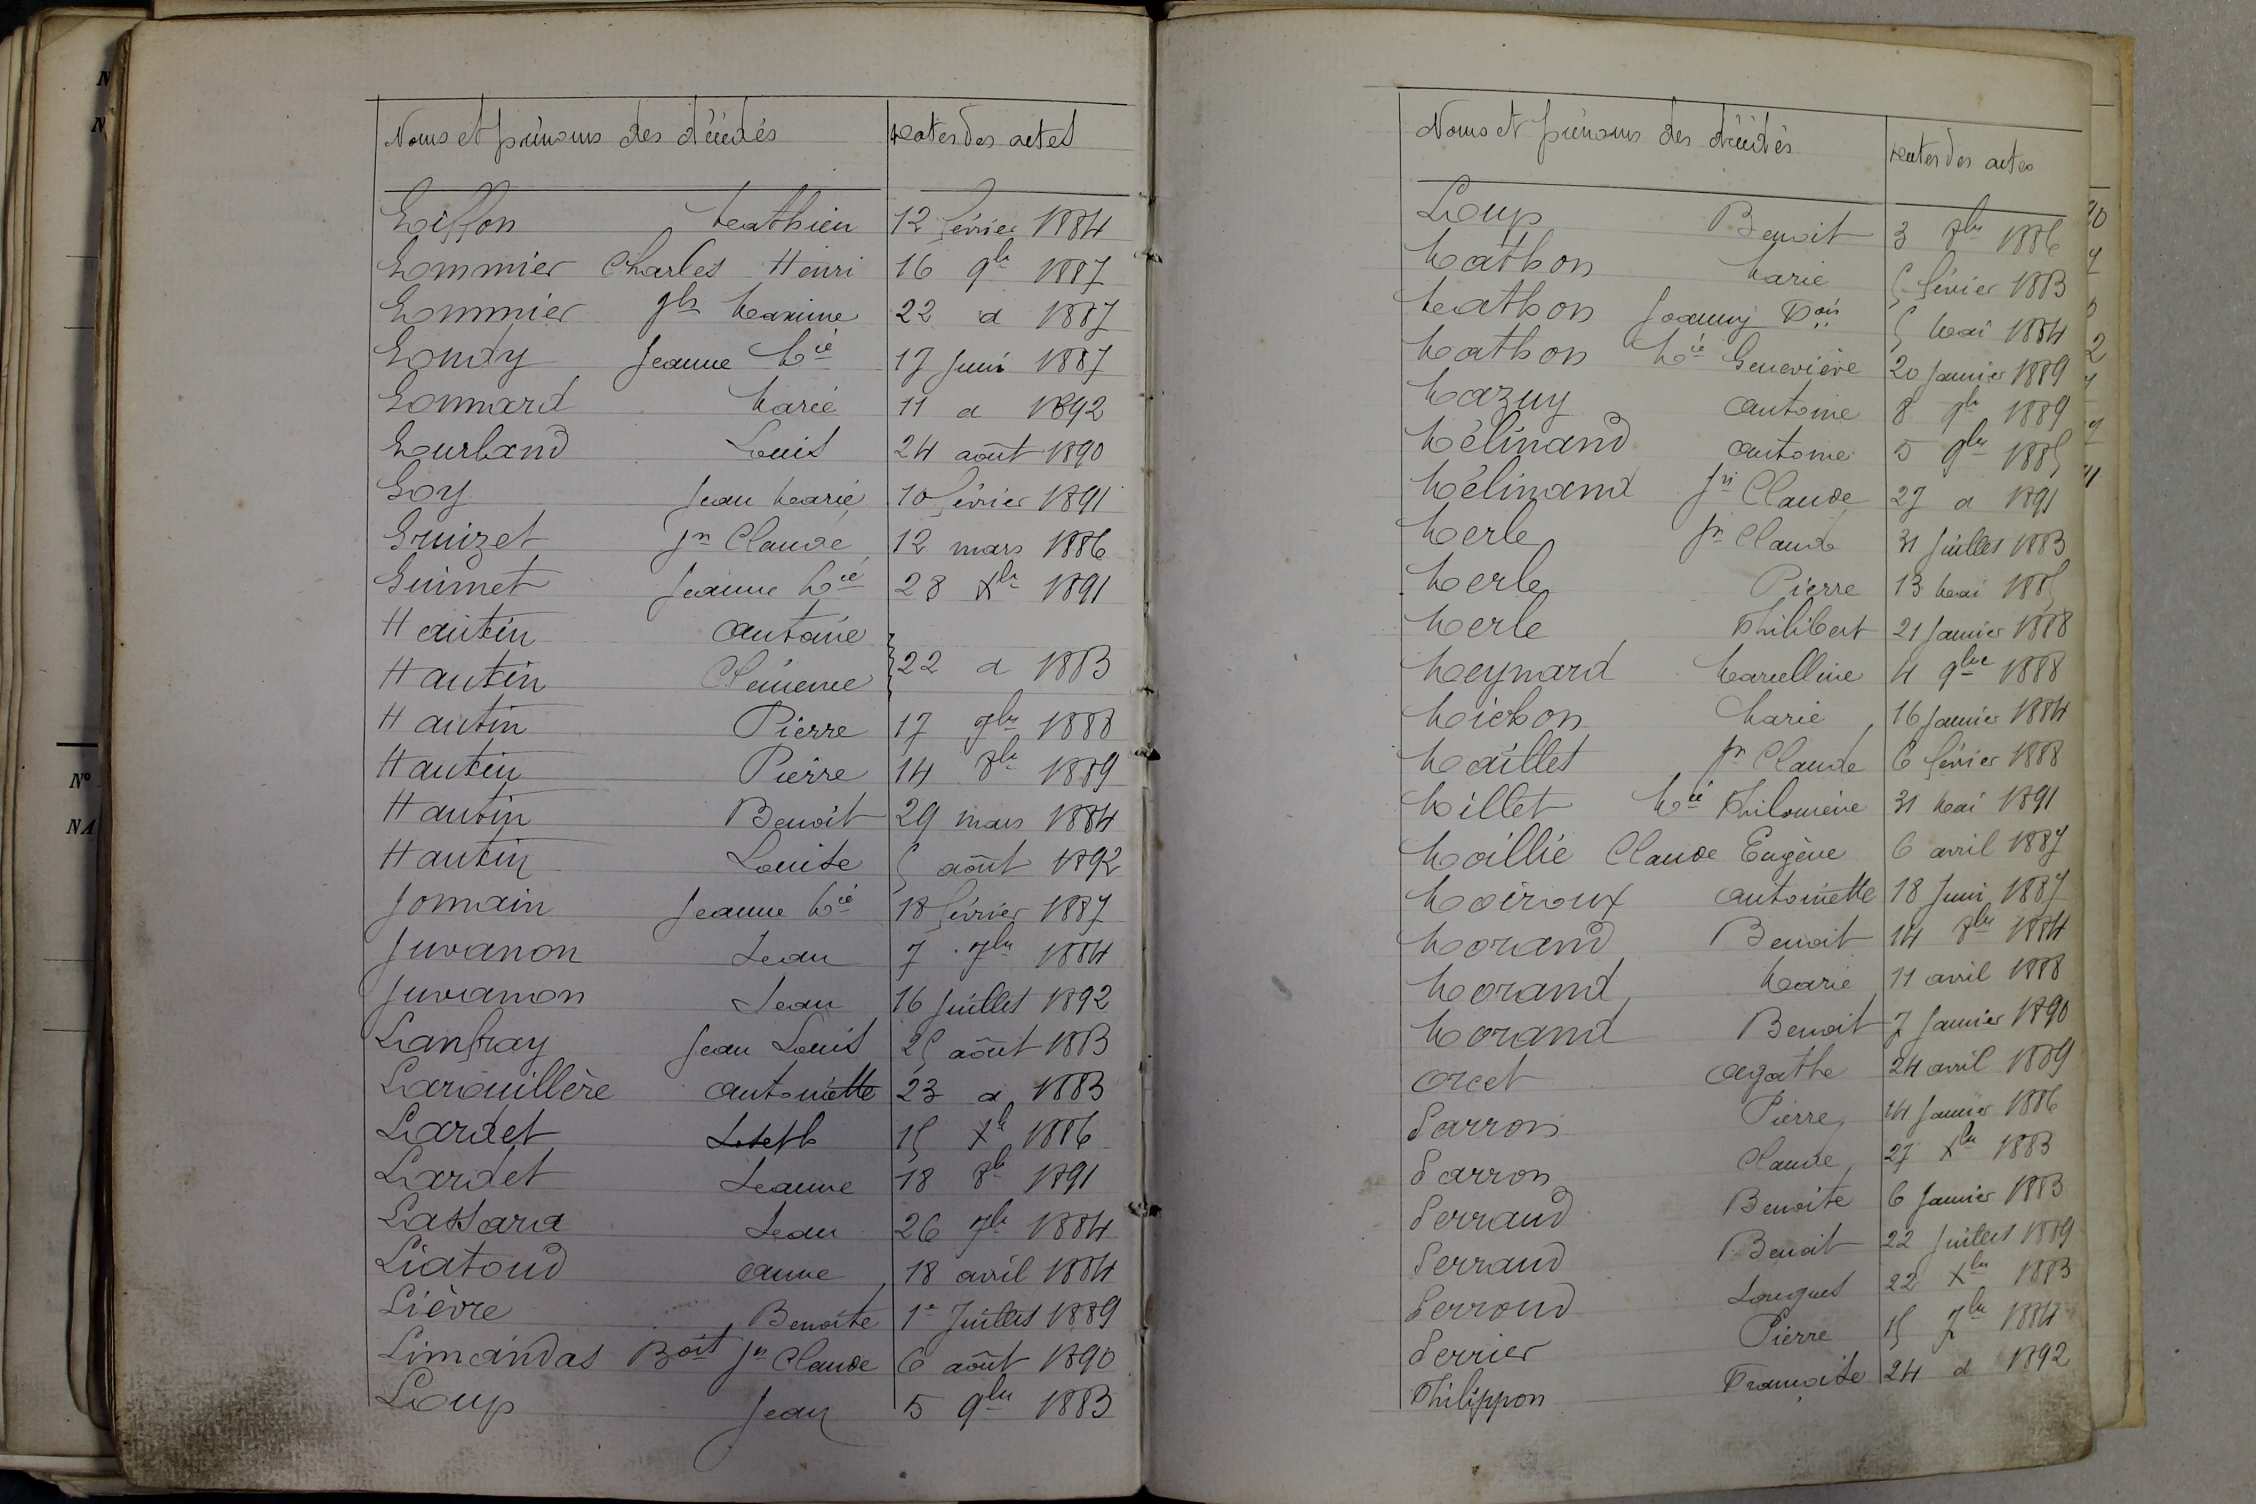 Noms et prénoms des décédés Dates des actes
Giffon Mathieu 12 février 1884
Gommier Charles Henri 16 9bre 1887
Gommier Jph Maxime 22 d 1887
Gondy Jeanne Mie 17 Juin 1887
Gonnard Marie 11 d 1892
Gourland Louis 24 août 1890
Goy Jean Marie 10 février 1891
Gruizet Jn Claude 12 mars 1886
Guimet Jeanne Mie 28 Xbre 1891
Hautin Antoine
Hautin Clémence 22 d 1883
Hautin Pierre 17 7bre 1888
Hautin Pierre 14 8bre 1889
Hautin Benoit 29 mars 1884
Hautin Louise 5 août 1892
Jomain Jeanne Mie 18 février 1887
Juvanon Jean 7 7bre 1884
Juvanon Jean 16 Juillet 1892
Lanfray Jean Louis 25 août 1883
Larouillère Antoinette 23 d 1883
Lardet Joseph 15 Xbre 1886
Lardet Jeanne 18 8bre 1891
Lassara Jean 26 7bre 1884
Liatoud Anne 18 avril 1884
Lièvre Benoîte 1er Juillet 1889
Limandas Boit Jn Claude 6 août 1890
Loup Jean 5 9bre 1883
Noms et prénoms des décédés Dates des actes
Loup Benoit 3 8bre 1886
Mathon Marie 5 février 1883
Mathon Joanny Fois 5 Mai 1884
Mathon Mie Geneviève 20 Janvier 1889
Mazuy Antoine 8 9bre 1889
Mélinand Antoine 5 9bre 1885
Mélinand Jn Claude 27 d 1891
Merle Jn Claude 31 Juillet 1883
Merle Pierre 13 Mai 1885
Merle Philibert 21 Janvier 1888
Meynard Marcelline 4 9bre 1888
Michon Marie 16 Janvier 1884
Maillet Jn Claude 6 février 1888
Millet Mie Philomène 31 Mai 1891
Moillié Claude Eugène 6 avril 1887
Moiroux Antoinette 18 Juin 1887
Morand Benoit 14 8bre 1884
Morand Marie 11 avril 1888
Morand Benoit 7 Janvier 1890
Orcet Agathe 24 avril 1889
Parron Pierre 14 Janvier 1886
Parron Claude 27 Xbre 1883
Perraud Benoîte 6 Janvier 1883
Perraud Benoit 22 Juillet 1889
Perroud Jacques 22 Xbre 1883
Perrier Pierre 15 7bre 1884
Philippon Françoise 24 d 1892